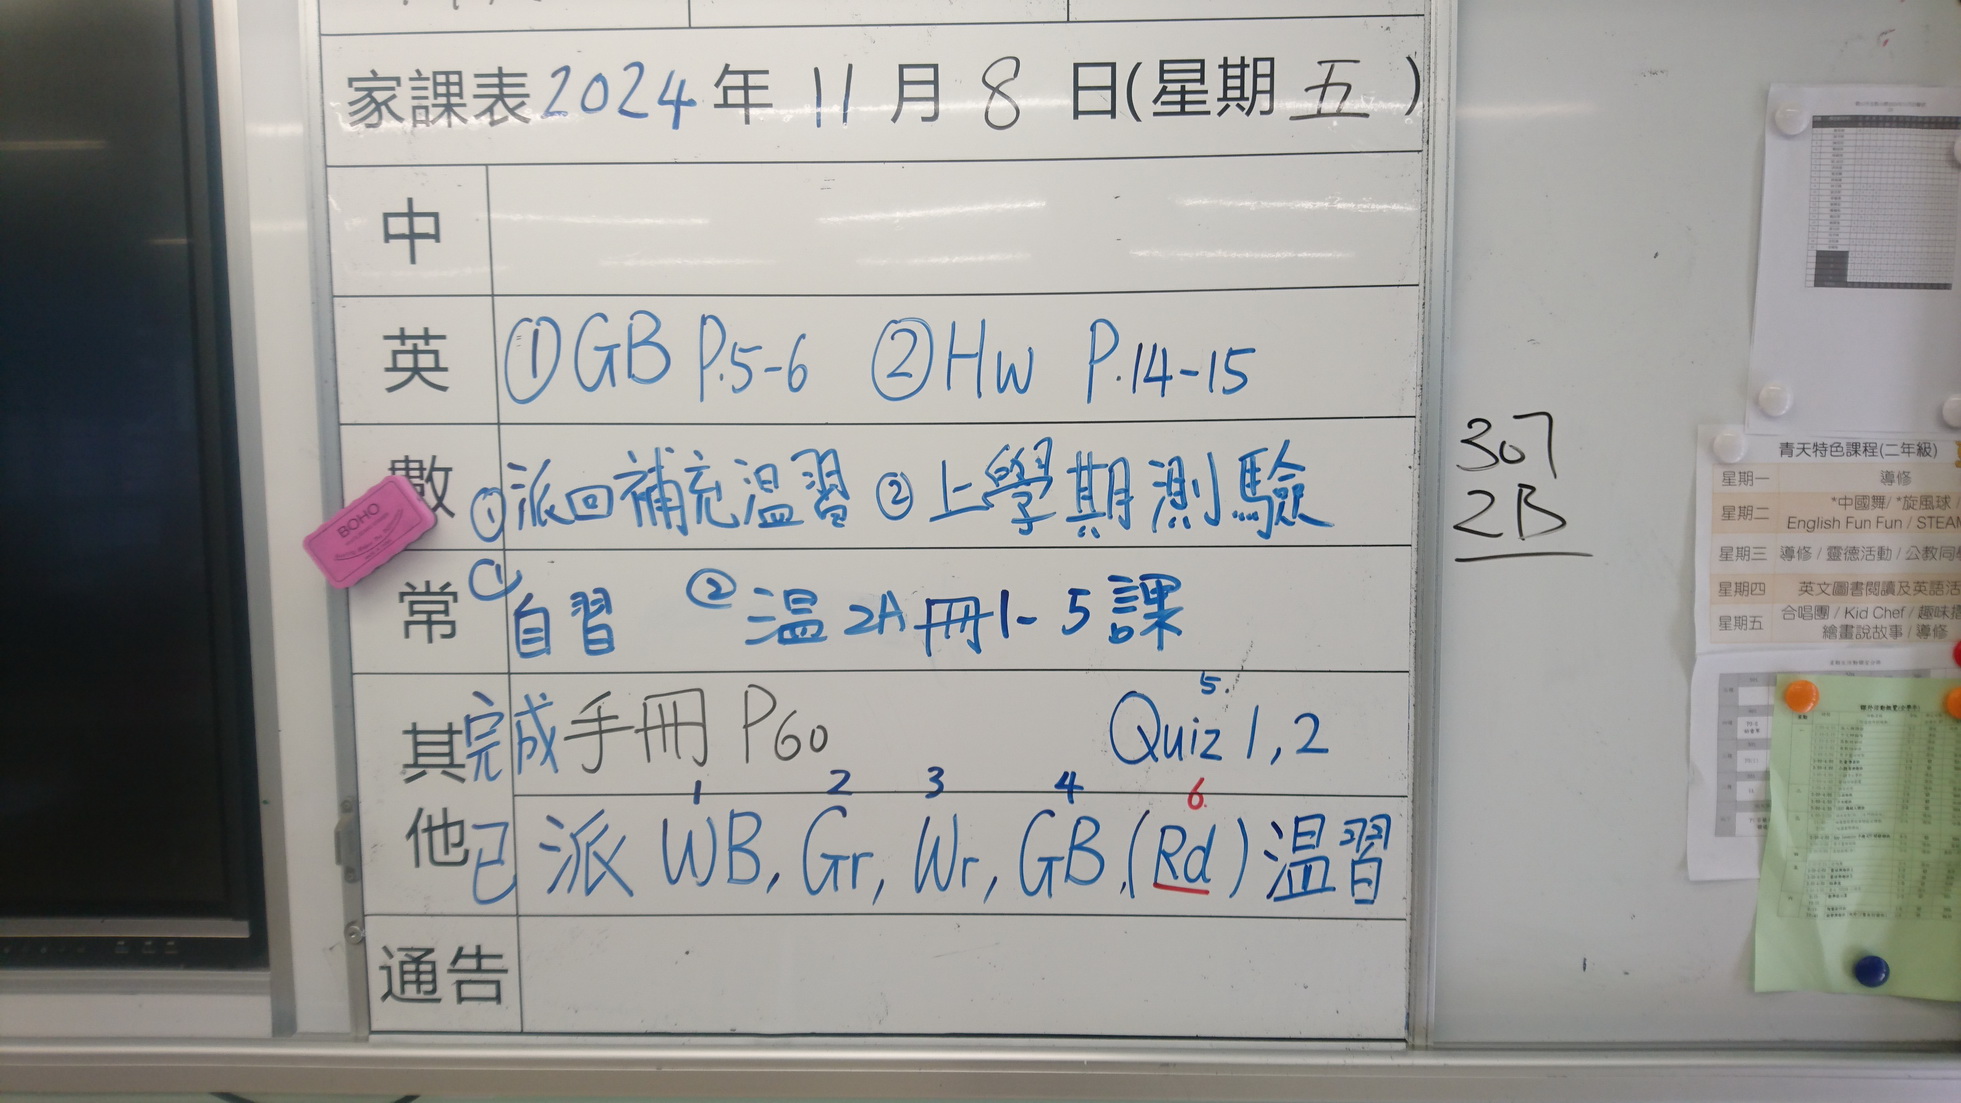 家課表2024年11月8日(星期五)
中
英 ①GB P.5-6 ②HW P.14-15
數 ①派回補充溫習 ②上學期測驗
BOHO
常 ①自習 ②溫2A冊1-5課
5.
其他 完成手冊 P60 Quiz 1,2
1 2 3 4 6
已派 WB, Gr, Wr, GB, (Rd) 溫習
通告
307
2B
青天特色課程(二年級)
星期一 導修
星期二 *中國舞/ *旋風球 /
English Fun Fun / STEAM
星期三 導修 / 靈德活動 / 公教同
星期四 英文圖書閱讀及英語活
星期五 合唱團 / Kid Chef / 趣味
繪畫說故事 / 導修